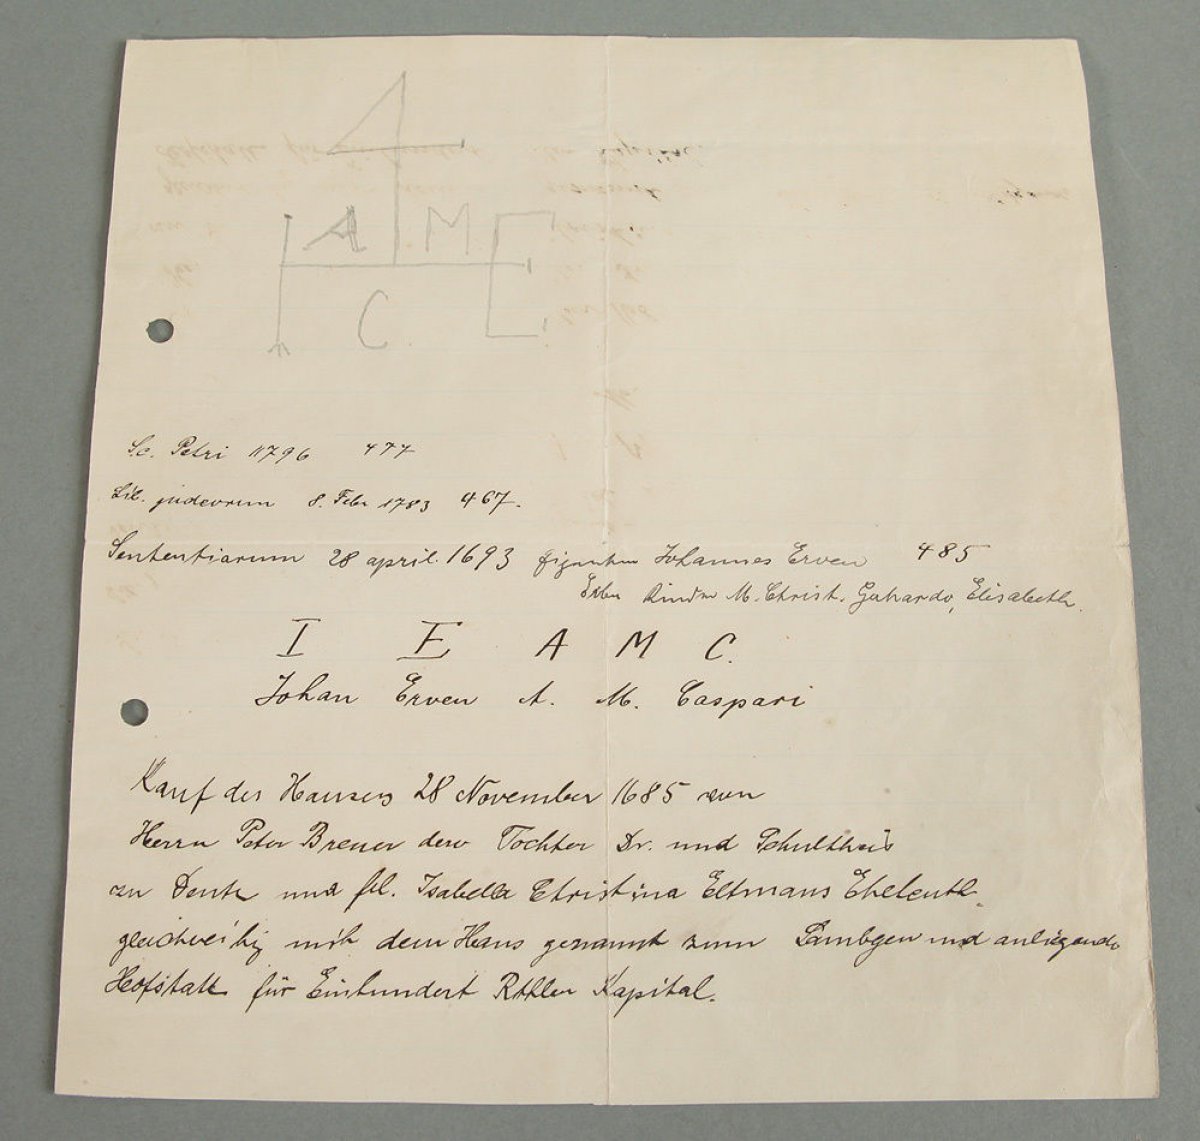 A M
C
Sc. Petri 1796 477
Lib. judeorum 8. Febr 1783 467.
Sententiarum 28 april. 1693 Johannes Erven 485
Erben Kinder M. Christ. Gerhardo, Elisabeth.
I E A M C.
Johan Erven A. M. Caspari
Kauf des Hauses 28 November 1685 von
Herrn Peter Breuer der Tochter Dr. und Schultheis
zu Deutz und frl. Isabella Christina Eltmans Eheleuth
gleichzeitig mit dem Haus genannt zum Lämbgen und anliegende
Hofstatt für Einhundert Rthler Kapital.